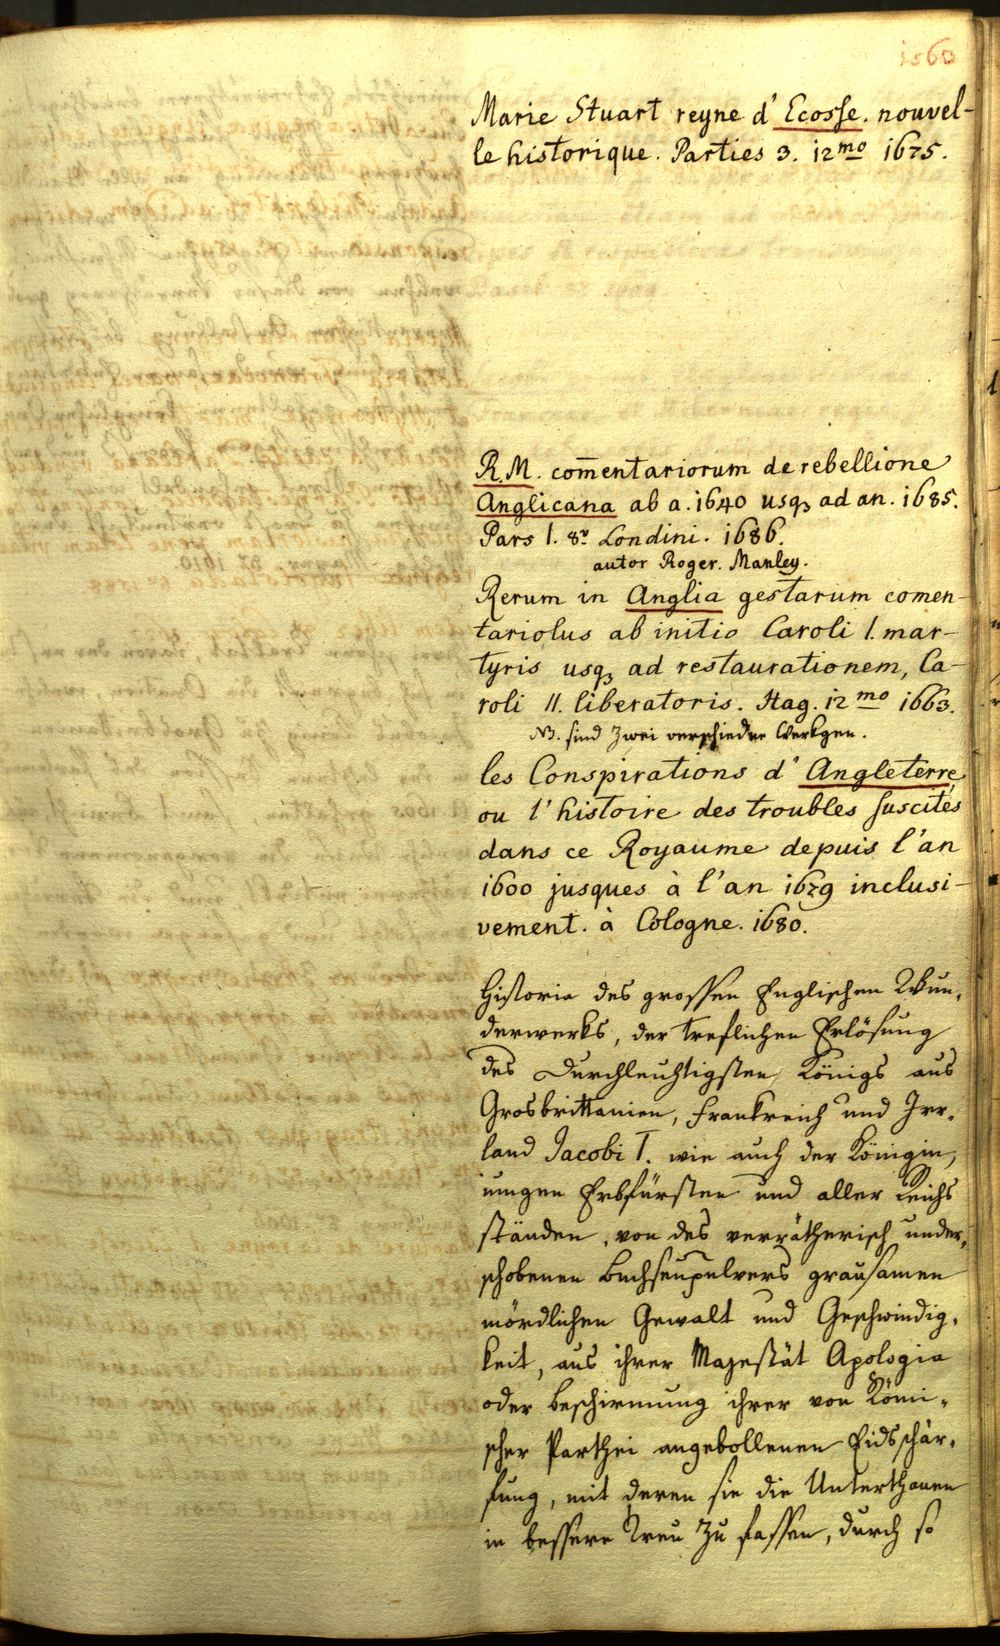 1560
Marie Stuart reyne d' Ecosse. nouvel-
le historique. Parties 3. 12mo 1675.
R. M. com̄entariorum de rebellione
Anglicana ab a. 1640 usqꝫ ad an. 1685.
Pars I. 8v Londini. 1686.
autor Roger. Manley.
Rerum in Anglia gestarum comen-
tariolus ab initio Caroli I. mar-
tyris usqꝫ ad restaurationem, Ca-
roli II. liberatoris. Hag. 12mo 1663.
NB. sind zwei verschiedne Werkgen.
les Conspirations d' Angleterre
ou l' histoire des troubles suscités
dans ce Royaume depuis l'an
1600 jusques à l'an 1679 inclusi-
vement. à Cologne. 1680.
Historia des grossen Englischen Wun-
derwerks, der treflichen Erlösung
des Durchleuchtigsten Königs aus
Grosbrittanien, Frankreich und Irr-
land Jacobi I. wie auch der Königin,
iungen Erbfürsten und aller Reichs
ständen, von des verrätherisch under-
schobenen Buchsenpulvers grausamen
mördlichen Gewalt und Geschwindig-
keit, aus ihrer Majestät Apologia
oder Beschirmung ihrer von Römi-
scher Parthei angebollenen Eidsschär-
fung, mit deren sie die Unterthanen
in bessere Treu zu fassen, durch so